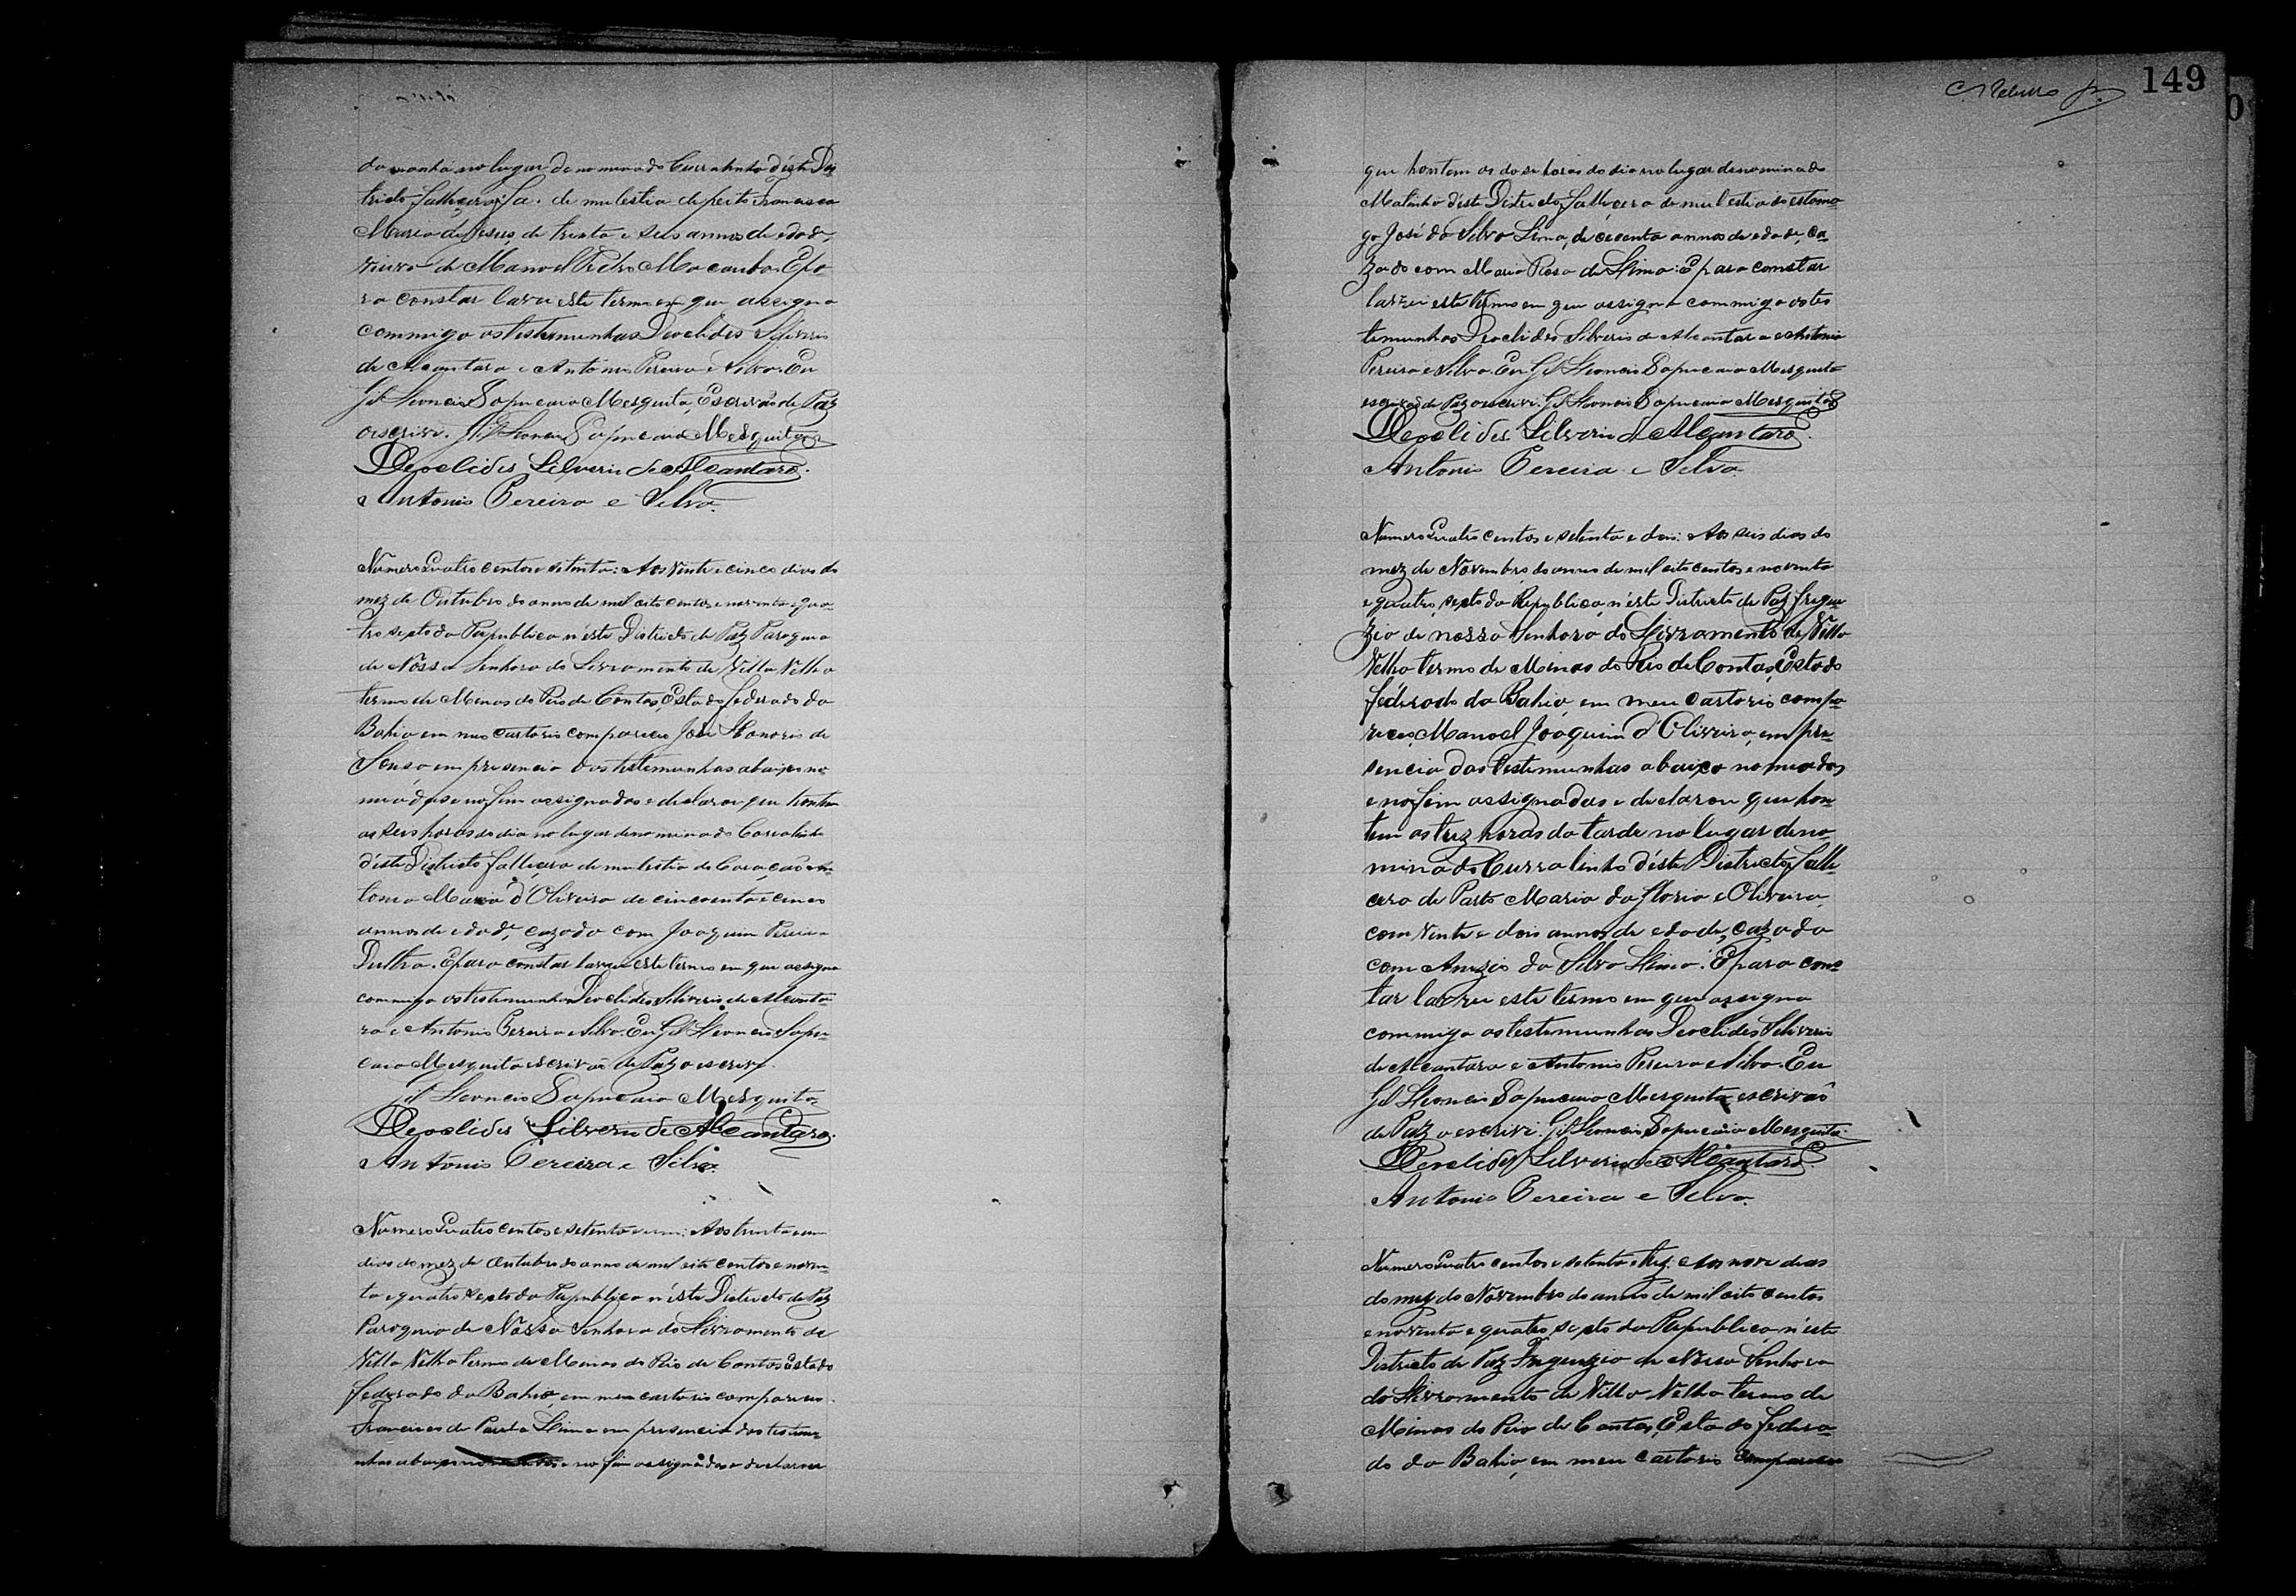 da manhã no lugar denominado Curralinho d'éste Dis
tricto falleçera, fa. de mulestia de peito Francisca
Maria de Jesus, de trinta e seis annos de edade,
viuva de Manoel Pedro Macauba. E pa
ra constar lavrei este termo em que assigna
commigo as testemunhas Deoclides Silverio
de Alcantara e Antonio Pereira e Silva. Eu
Gil Leoncio Sapucaia Mesquita, Escrivão de Paz
o escrivi. Gil Leoncio Sapucaia Mesquita
Deoclides Silverio de Alcantara.
Antonio Pereira e Silva.
Numero Quatro centos e setenta: Aos vinte e cinco dias do
mez de Outubro do anno de mil oito centos e noventa e qua
tro sexto da Republica n'éste Districto de Paz Paroquia
de Nossa Senhora do Livramento de Villa Velha
termo de Minas do Rio de Contas, Estado federado da
Bahia em meu cartorio compareceo José Honorio de
Sousa em presencia das testemunhas abaixo no
meadas e no fim assignadas e declarou que hontem
as seis horas do dia no lugar denominado Curralinho
d'éste Districto falleçera de mulestia de Coração An
tonia Maria d'Oliveira de cincoenta e cinco
annos de edade, cazada com Joaquim Pereira
Dultra. E para constar lavrei este termo em que assigna
commigo as testemunhas Deoclides Silverio de Alcanta
ra e Antonio Pereira e Silva. Eu Gil Leoncio Sapu
caia Mesquita escrivão de Paz o escrivi.
Gil Leoncio Sapucaia Mesquita
Deoclides Silverio de Alcantara.
Antonio Pereira e Silva.
Numero Quatro centos e setenta e um: Aos trinta e um
dias do mez de Outubro do anno de mil oito centos e noven
ta e quatro sexto da Republica n'éste Districto de Paz
Paroquia de Nossa Senhora do Livramento de
Villa Velha termo de Minas do Rio de Contas Estado
federado da Bahia, em meu cartorio compareceo
Francisco de Paula Lima em presencia das testemu
nhas abaixo nomeadas e no fim assignadas e declarou
149
que hontem as dose horas do dia no lugar denominado
Matinha d'éste Districto, falleçera de mulestia do estoma
go José da Silva Lima, de cecenta annos de edade, ca
zado com Maria Rosa de Lima: E para constar
lavrei este termo em que assigna commigo as tes
temunhas Deoclides Silverio de Alcantara e Antonio
Pereira e Silva. Eu Gil Leoncio Sapucaia Mesquita
escrivão de Paz o escrivi. Gil Leoncio Sapucaia Mesquita
Deoclides Silverio de Alcantara.
Antonio Pereira e Silva.
Numero Quatro centos e setenta e dois: Aos seis dias do
mez de Novembro do anno de mil oito centos e noventa
e quatro, sexto da Republica, n'éste Districto de Paz fregue
zia de nossa Senhora do Livramento de Villa
Velha termo de Minas do Rio de Contas, Estado
federado da Bahia, em meu cartorio compa
receo, Manoel Joaquim d'Oliveira, em pre
sencia das testemunhas abaixo nomeadas
e no fim assignadas e declarou que hon
tem as trez horas da tarde no lugar deno
minado Curralinho d'éste Districto, falle
cera de Parto Maria da Gloria e Oliveira,
com vinte e dois annos de edade, cazada
com Anizio da Silva Lima. E para cons
tar lavrei este termo em que assigna
commigo as testemunhas Deoclides Silverio
de Alcantara e Antonio Pereira e Silva. Eu
Gil Leoncio Sapucaia Mesquita escrivão
de Paz o escrivi. Gil Leoncio Sapucaia Mesquita.
Deoclides Silverio de Alcantara.
Antonio Pereira e Silva.
Numero Quatro centos e setenta e trez: Aos nove dias
do mez de Novembro do anno de mil oito centos
e noventa e quatro, sexto da Republica, n'éste
Districto de Paz Freguezia de Nossa Senhora
do Livramento de Villa Velha termo de
Minas do Rio de Contas, Estado federa
do da Bahia, em meu cartorio compareceo